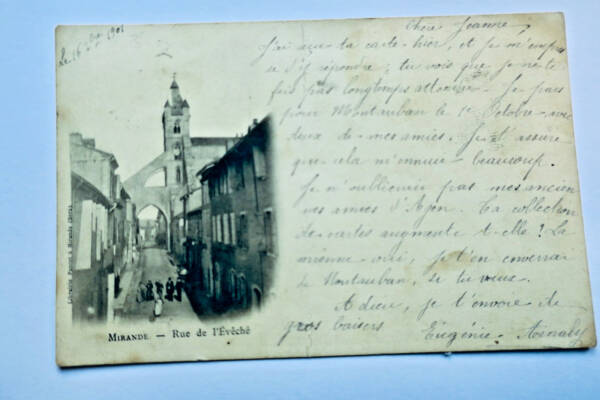 Le 16 1901
Chère Jeanne,
J'ai reçu ta carte hier, et je m'empres
se d'y répondre; tu vois que je ne te
fais pas longtemps attendre. Je pars
pour Montauban le 1er Octobre avec
deux de mes amies. Je t'assure
que cela m'ennuie beaucoup.
Je n'oublierai pas mes ancien
nes amies d'Agen. Ta collection
de cartes augmente t-elle? La
mienne oui, je t'en enverrai
de Montauban, si tu veux.
Adieu, je t'envoie de
gros baisers
Eugénie
MIRANDE. — RUE DE L'ÉVÊCHÉ
Librairie à Mirande (Gers).